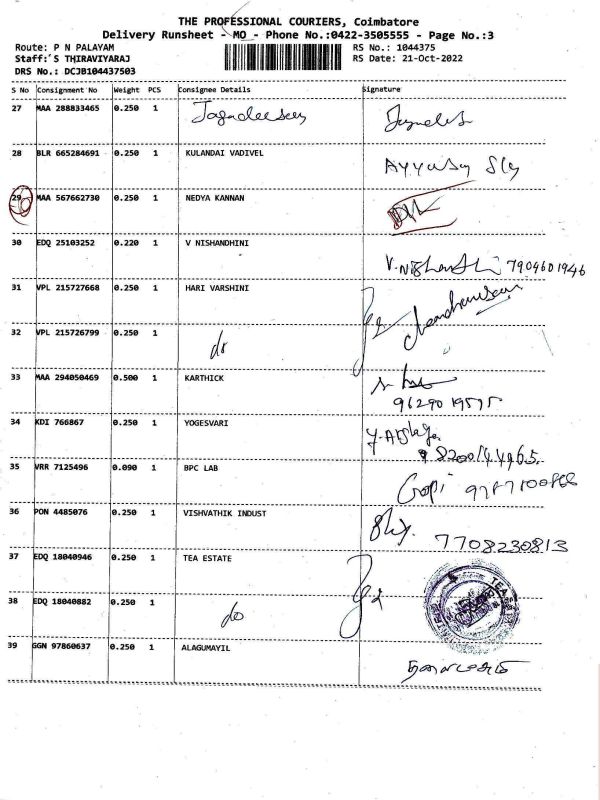 THE PROFESSIONAL COURIERS, Coimbatore
Delivery Runsheet - MO - Phone No.:0422-3505555 - Page No.:3
Route: P N PALAYAM RS No.: 1044375
Staff: S THIRAVIYARAJ RS Date: 21-Oct-2022
DRS No.: DCJB104437503
S No Consignment No Weight PCS Consignee Details Signature
27 MAA 288833465 0.250 1 Jagadeesan
28 BLR 665284691 0.250 1 KULANDAI VADIVEL
29 MAA 567662730 0.250 1 NEDYA KANNAN
30 EDQ 25103252 0.220 1 V NISHANDHINI V.Nishandhini 7904601946
31 VPL 215727668 0.250 1 HARI VARSHINI
32 VPL 215726799 0.250 1 do
33 MAA 294050469 0.500 1 KARTHICK
9629019595
34 KDI 766867 0.250 1 YOGESVARI
8200144965
35 VRR 7125496 0.090 1 BPC LAB Gopi
36 PON 4485076 0.250 1 VISHVATHIK INDUST
7708230813
37 EDQ 18040946 0.250 1 TEA ESTATE
38 EDQ 18040882 0.250 1 do
39 GGN 97860637 0.250 1 ALAGUMAYIL